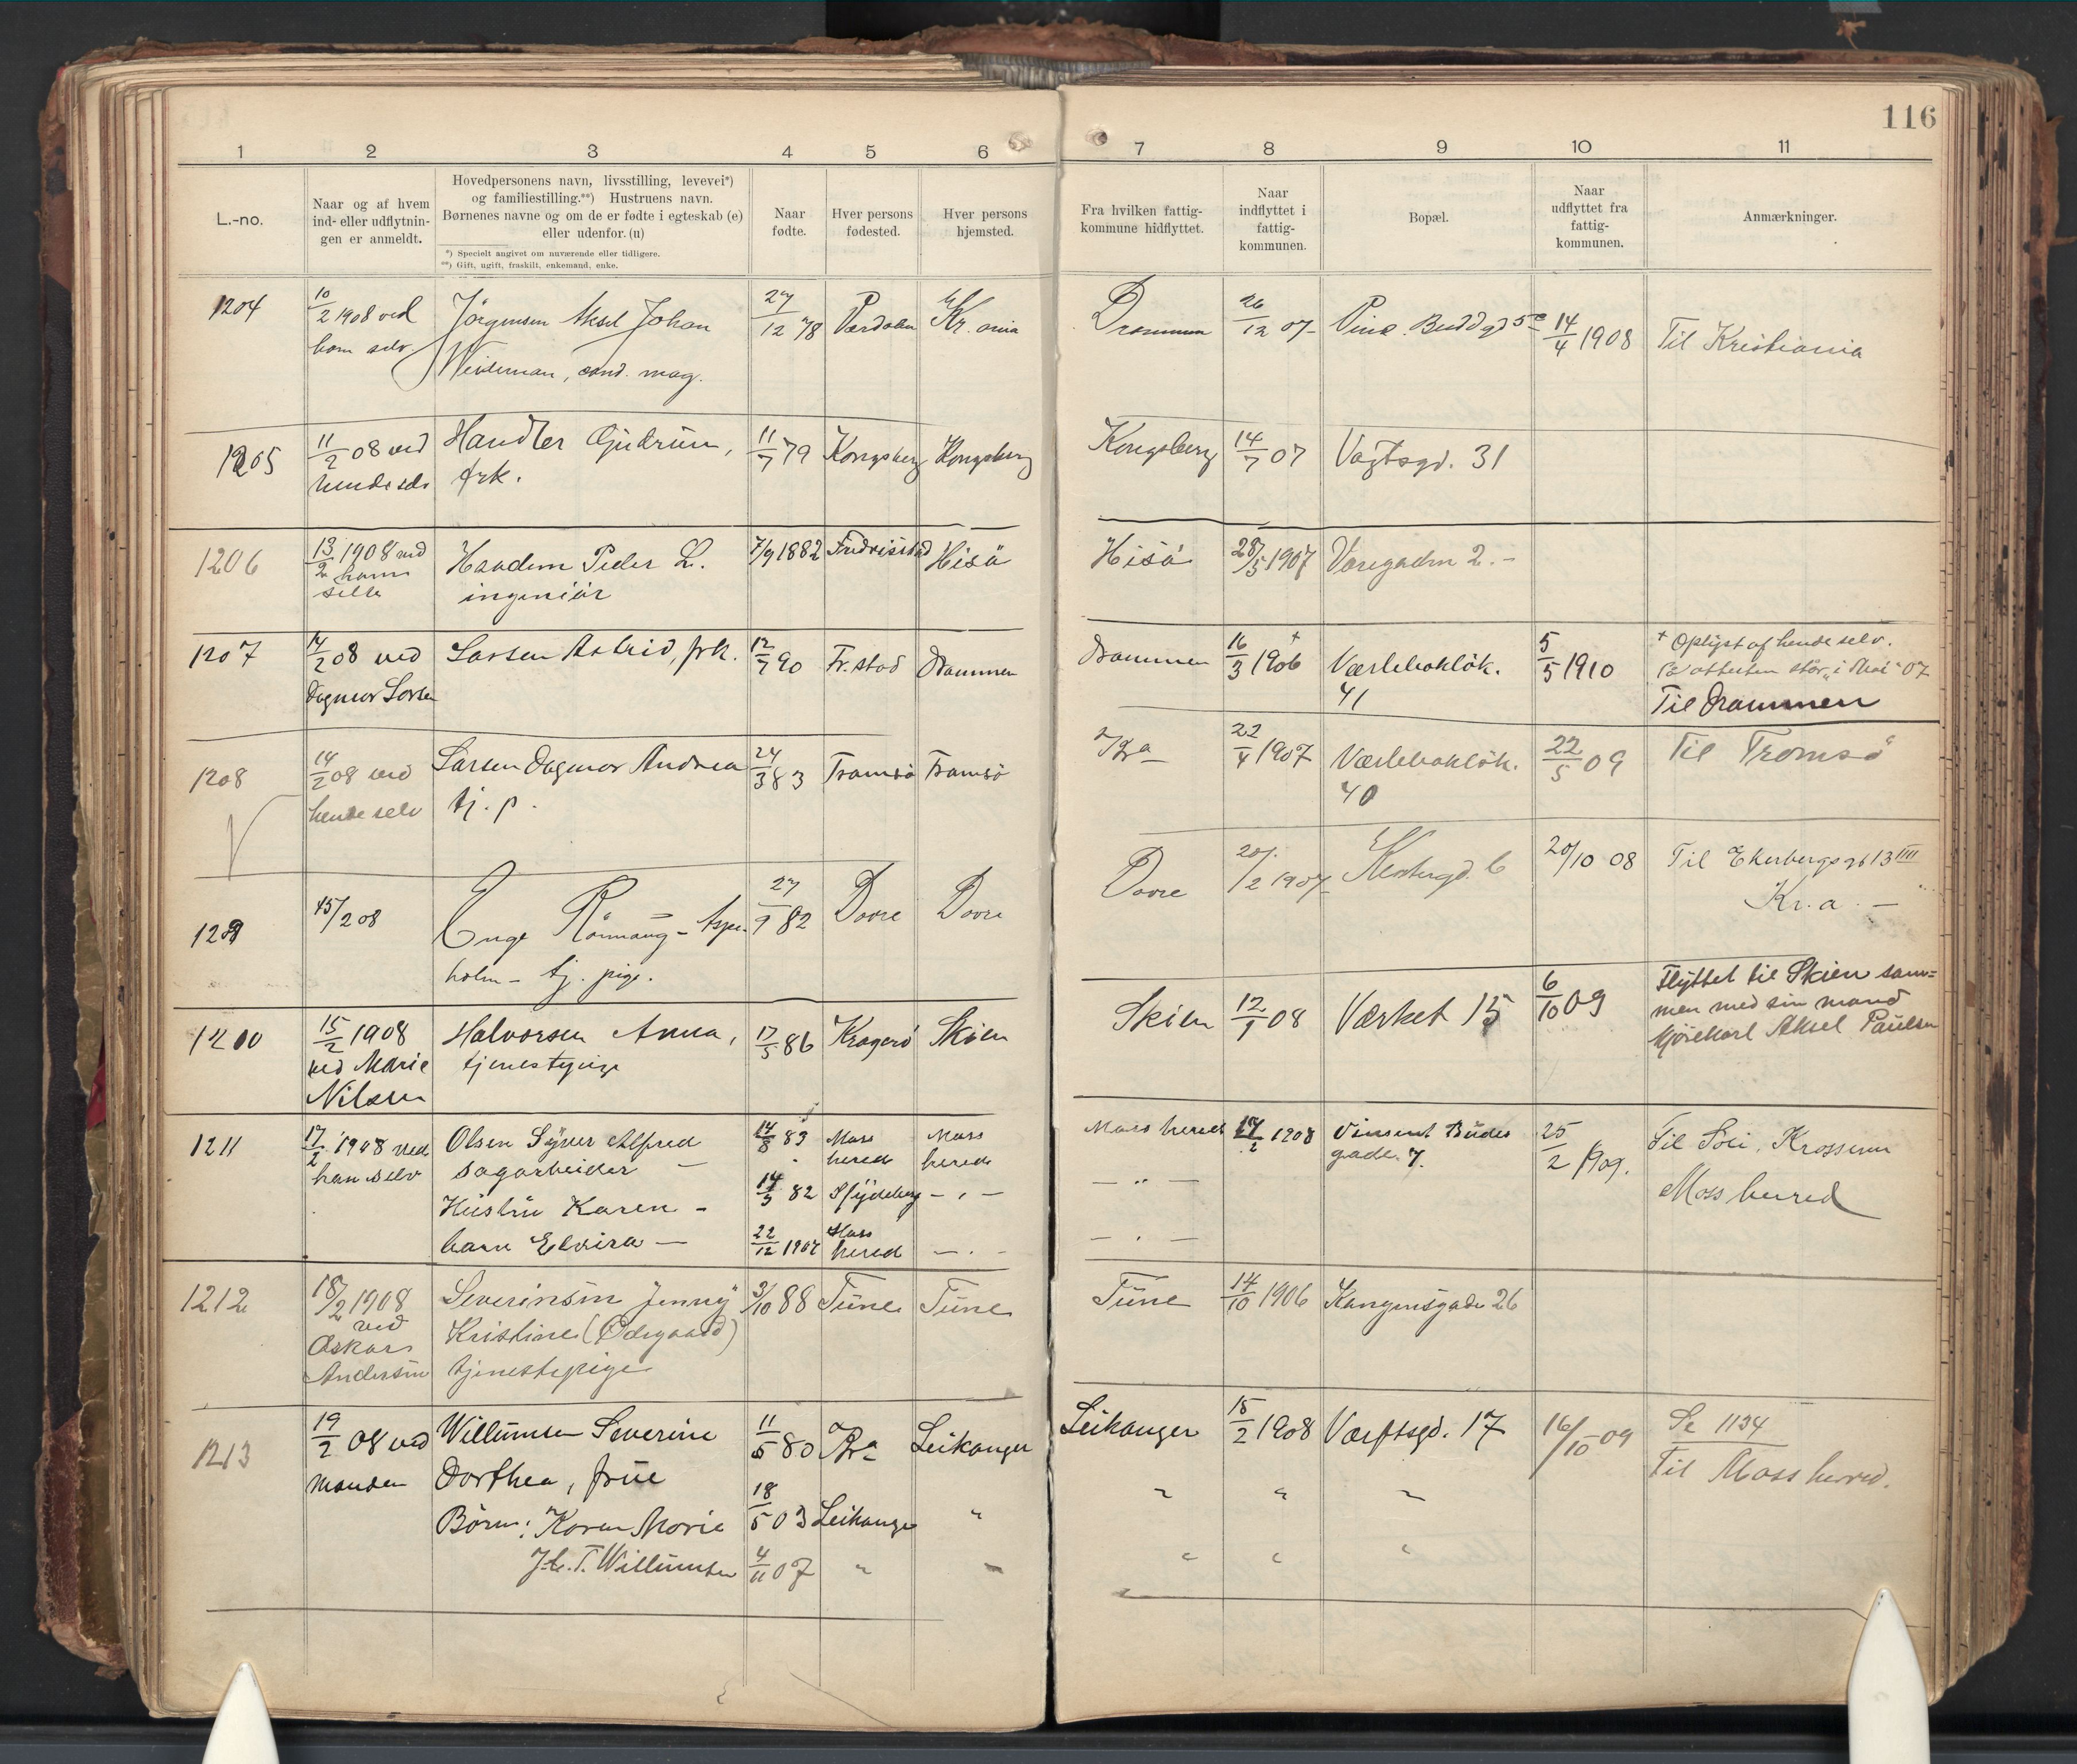 116
1 2 3 4 5 6 7 8 9 10 11
L.-no.
Naar og af hvem
ind- eller udflytnin-
gen er anmeldt.
Hovedpersonens navn, livsstilling, levevei*)
og familiestilling.**) Hustruens navn.
Børnenes navne og om de er fødte i egteskab (e)
eller udenfor. (u)
*) Specielt angivet om nuværende eller tidligere.
**) Gift, ugift, fraskilt, enkemand, enke.
Naar
fødte.
Hver persons
fødested.
Hver persons
hjemsted.
Fra hvilken fattig-
kommune hidflyttet.
Naar
indflyttet i
fattig-
kommunen.
Bopæl.
Naar
udflyttet fra
fattig-
kommunen.
Anmærkninger.
1204 10/2 1908 ved Jörgensen Aksel Johan 27/12 78 Værdalen Kr.ania Drammen 26/12 07 14/4 1908 Til Kristiania
ham selv Weideman, cand. mag.
1205 11/2 08 ved Handler Gjudrun, 11/7 79 Kongsberg Kongsberg Kongsberg 14/7 07 Vogtsgd. 31
hende selv frk.
1206 13/2 1908 ved Peder L. 7/9 1882 Fredrikstad Hisö Hisö 28/5 1907 2.-
ham selv ingeniör
1207 14/2 08 ved Larsen Astrid, frk. 12/7 90 Fr.stad Drammen Drammen 16/3 1906 + Værlebakløk. 5/5 1910 + Oplyst af hende selv.
Dagmar Larsen 41 Paa attesten står "i Mai" 07
Til Drammen
1208 14/2 08 ved Larsen Dagmar Andrea 24/3 83 Tromsö Tromsö Kra 22/4 1907 Værlebakløk. 22/5 09 Til Tromsö
hende selv tj. p. 40
1209 15/2 08 Enge Rönnaug - Aspe- 27/9 82 Dovre Dovre Dovre 20/2 1907 20/10 08 Til Ekerbergsgt 13 IIII
holm - tj. pige. Kr.a. -
1200 15/2 1908 Halvorsen Anna, 17/5 86 Kragerö Skien Skien 12/1 08 Værket 15 6/10 09 Flyttet til Skien sam=
ved Marie tjenestepige men med sin mand
Nilsen kjörekarl Aksel Paulsen
1211 17/2 1908 ved Olsen Syver Alfred 14/8 83 Moss Moss Moss herred 14/2 1908 Vinsent Budes 25/2 1909. Til Soli, Krossern
han selv sagarbeider - herred herred gade. 7. Moss herred
Hustru Karen - 14/3 82 Spydeberg - " - - " -
barn Elvira - 22/12 1907 Moss herred - " - - " -
1212 18/2 1908 Severinsen Jenny 3/10 88 Tune Tune Tune 14/10 1906 Kongensgade 26
ved Kristine (Ödegaard)
Oskar tjenestepige
Andersen
1213 19/2 08 ved Willumsen Severine 11/5 80 Kra Leikanger Leikanger 15/2 1908 Værftsgd. 17 16/10 09 Se 1134
manden Dorthea, frue " " " Til Moss herred.
Børn: Karen Marie 18/5 03 Leikanger "
J.C.T. Willumsen 4/11 07 " " " " "